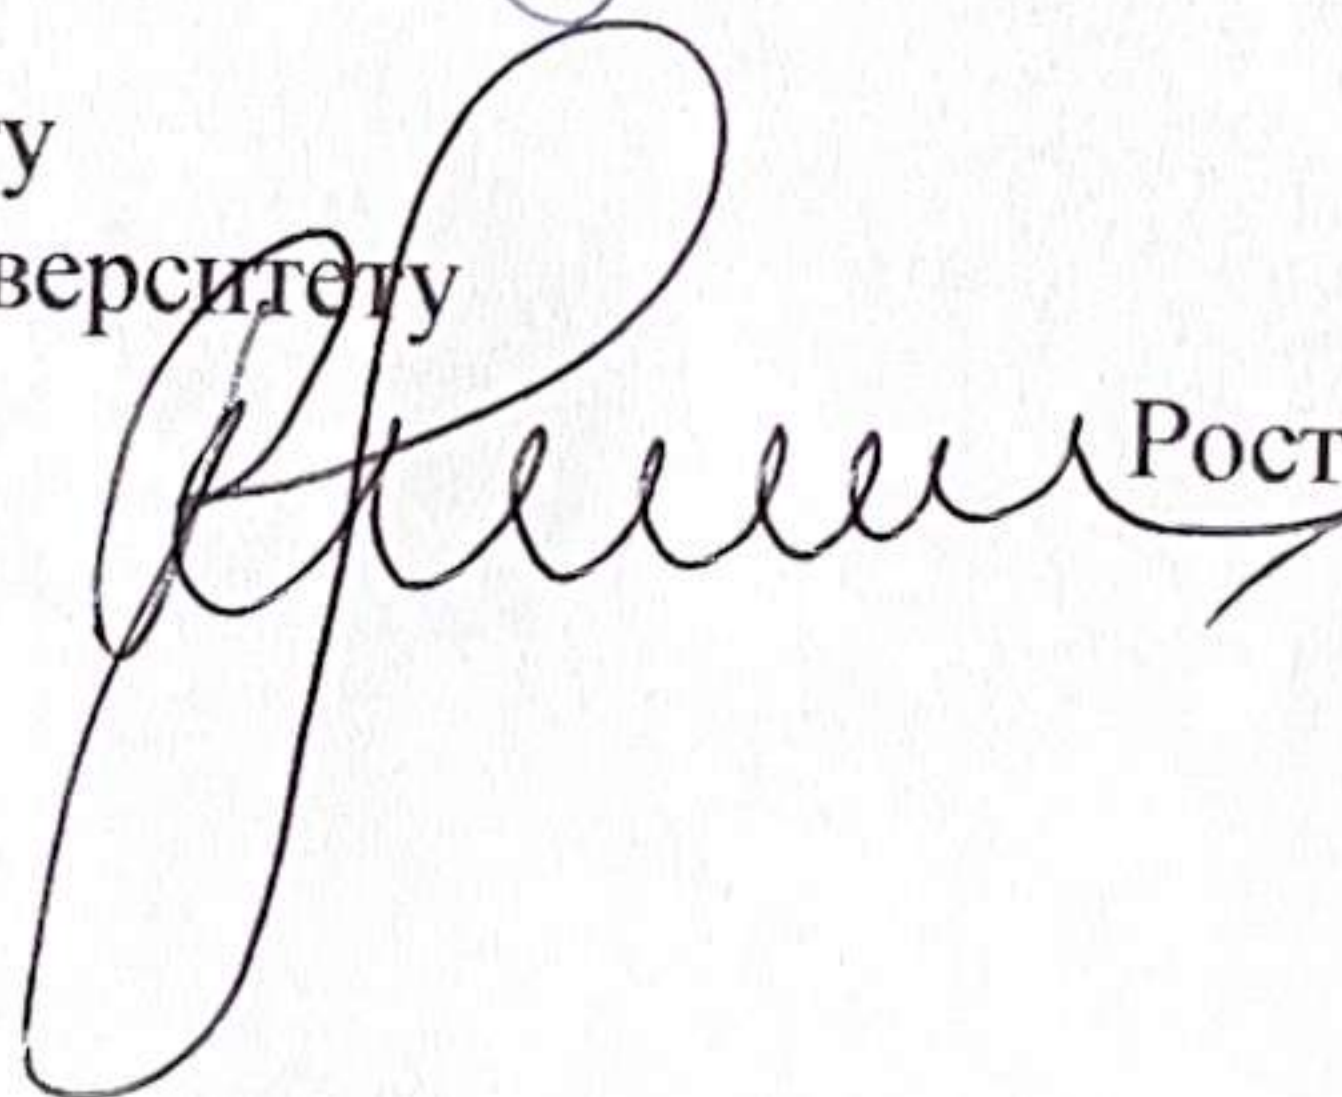 у
верситету
Рост